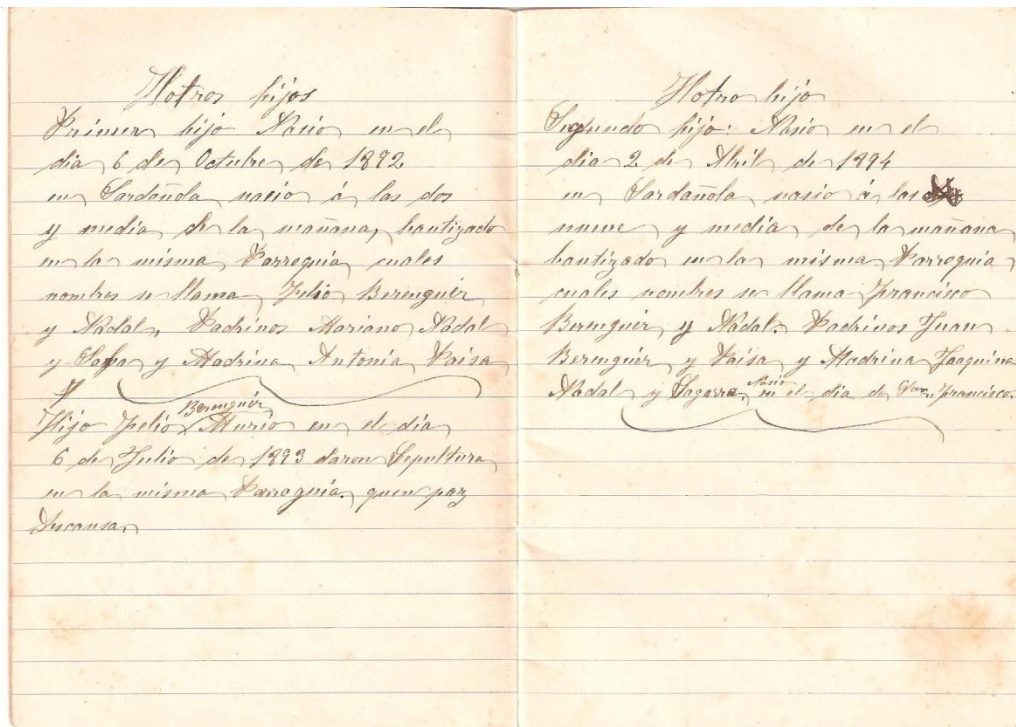 Hotros hijos
Primer hijo Nasio en el
dia 6 de Octubre de 1892
en Sardañola nasio á las dos
y media de la mañana, bautizado
en la misma Parroquia cuales
nombres se llama, Felio Berenguér
y Nadal, Padrinos Mariano Nadal
y y Madrina Antonia Paisa
Berenguér
Hijo Felio Murio en el dia
6 de Julio de 1893 daron Sepultura
en la misma Parroquia, quen paz
Descansa,
Hotro hijo
Segundo hijo: Nasio en el
dia 2 de Abril de 1894
en Sardañola nasio á las
nueve y media de la mañana
bautizado en la misma Parroquia
cuales nombres se llama Francisco
Berenguér y Nadal. Padrinos Juan
Berenguér y Paisa y Madrina Joaquina
Nadal y Sagarra, Nasio en el dia de San Francisco.